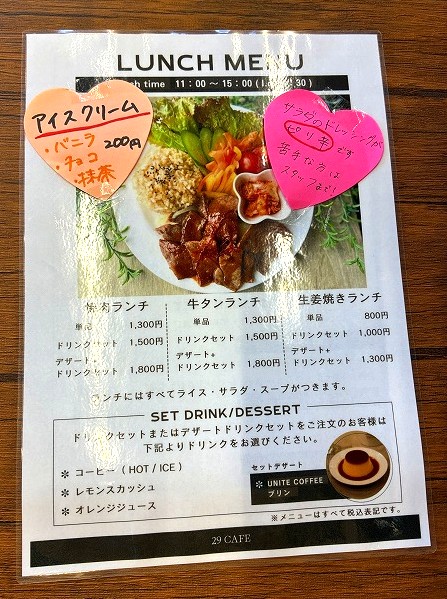 LUNCH MENU
ch time 11：00 ～ 15：00 (L. 30)
アイスクリーム
・バニラ
・チョコ
・抹茶
200円
サラダのドレッシングが
ピリ辛です
苦手な方は
スタッフまで!
焼肉ランチ
単品 1,300円
ドリンクセット 1,500円
デザート+
ドリンクセット 1,800円
牛タンランチ
単品 1,300円
ドリンクセット 1,500円
デザート+
ドリンクセット 1,800円
生姜焼きランチ
単品 800円
ドリンクセット 1,000円
デザート+
ドリンクセット 1,300円
ランチにはすべてライス・サラダ・スープがつきます。
SET DRINK/DESSERT
ドリンクセットまたはデザートドリンクセットをご注文のお客様は
下記よりドリンクをお選びください。
＊ コーヒー（ HOT / ICE ）
＊ レモンスカッシュ
＊ オレンジジュース
セットデザート
＊ UNITE COFFEE
プリン
※メニューはすべて税込表記です。
29 CAFE